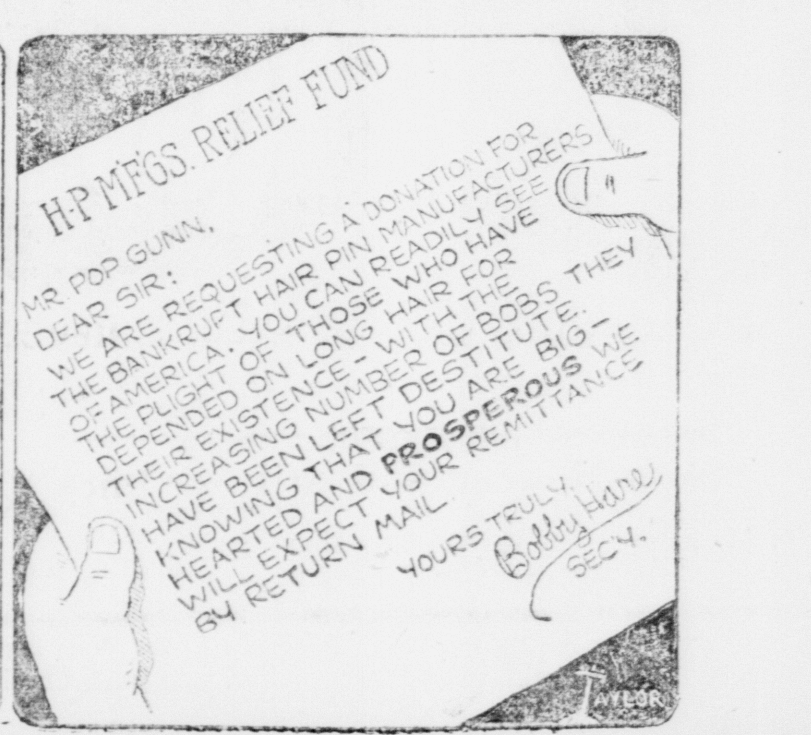 H-P M'F'GS. RELIEF FUND
MR. POP GUNN,
DEAR SIR:
WE ARE REQUESTING A DONATION FOR
THE BANKRUPT HAIR PIN MANUFACTURERS
OF AMERICA. YOU CAN READILY SEE
THE PLIGHT OF THOSE WHO HAVE
DEPENDED ON LONG HAIR FOR
THEIR EXISTENCE - WITH THE
INCREASING NUMBER OF BOBS THEY
HAVE BEEN LEFT DESTITUTE.
KNOWING THAT YOU ARE BIG-
HEARTED AND PROSPEROUS WE
WILL EXPECT YOUR REMITTANCE
BY RETURN MAIL
YOURS TRULY,
Bobby Hare
SEC'Y.
TAYLOR